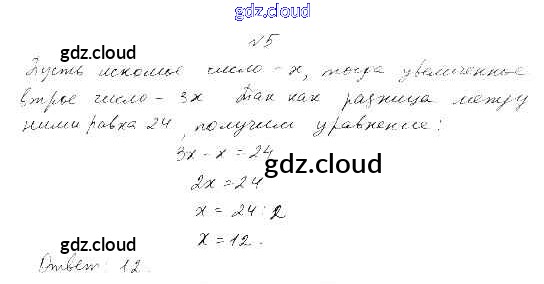 gdz.cloud
№5
gdz.cloud
Пусть искомое число - x, тогда увеличенное
втрое число - 3x Так как разница между
ними равна 24, получим уравнение:
3x - x = 24
gdz.cloud
2x = 24
x = 24 : 2
x = 12.
gdz.cloud
Ответ: 12.